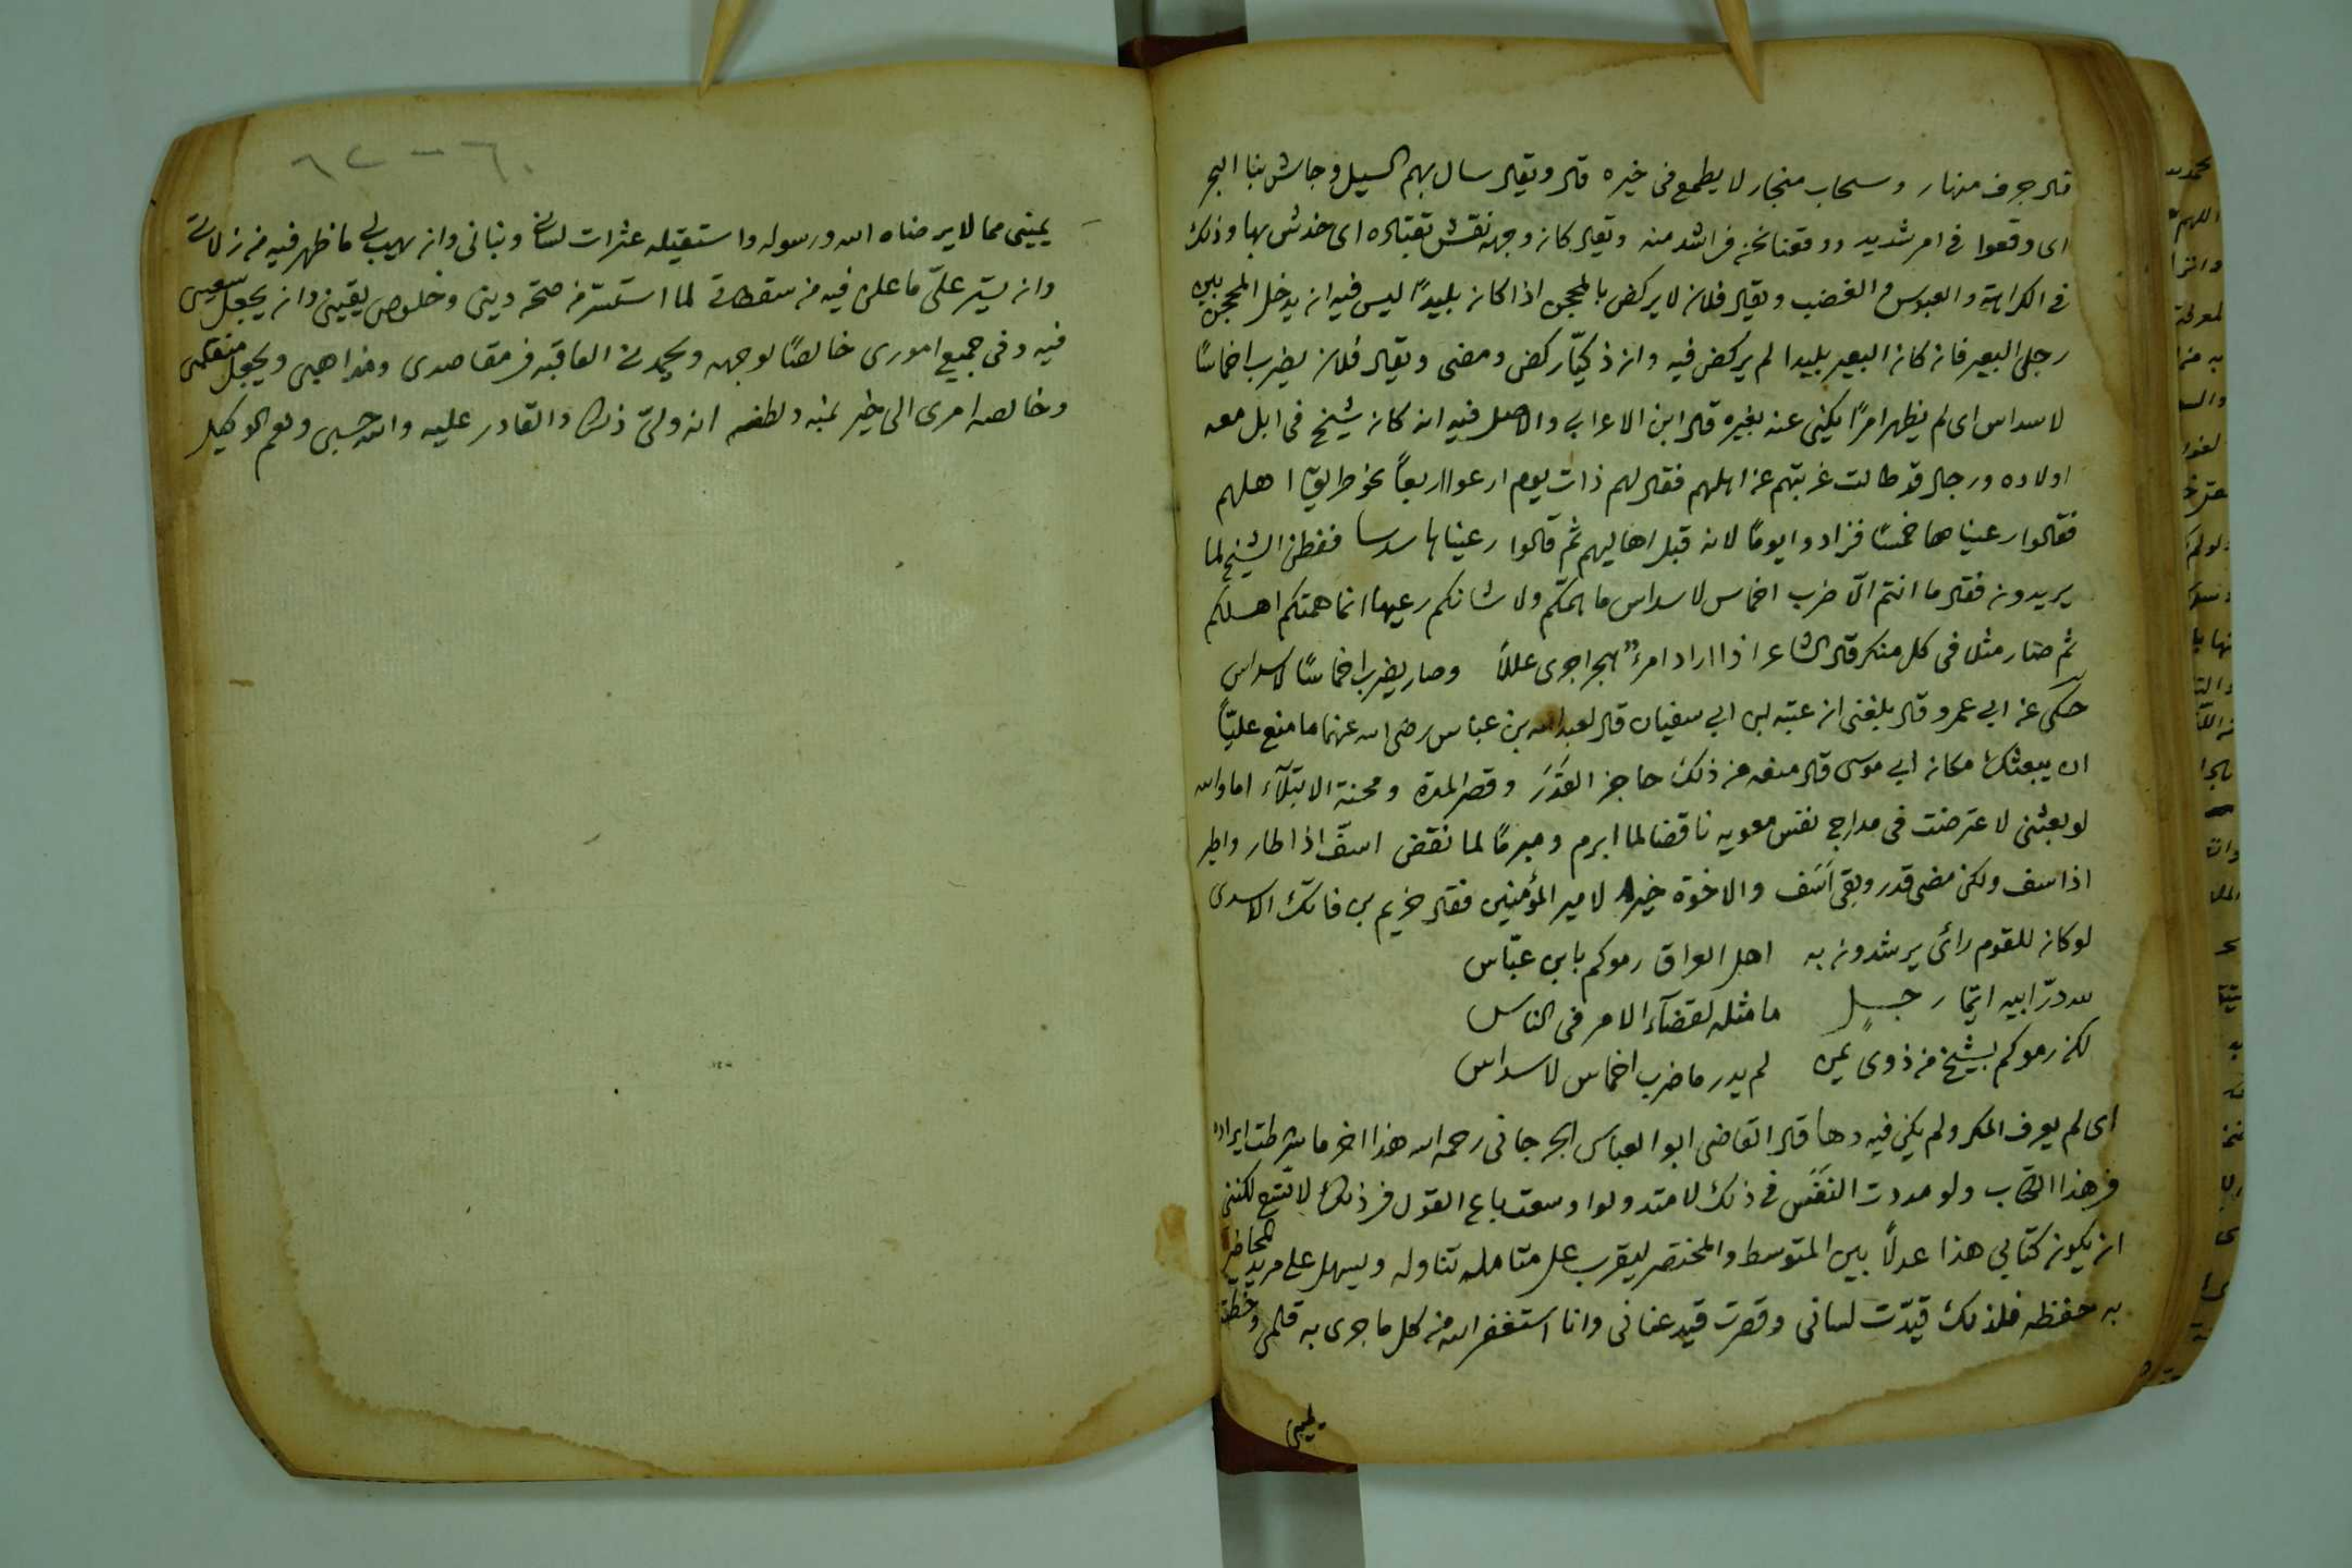 قال جرف منهار وسحاب منجار لا يطمع فى خيره قال ويقال سال بهم السيل وجاش بنا البحر
اى وقعوا فى امر شديد ووقعنا نحن فى اشد منه ويقال كان وجهه نقش بقتاده اى خدش بها وذلك
فى الكراهة والعبوس والغضب ويقال فلان لا يركض بالمحجن اذا كان بليدًا ليس فيه ان يدخل المحجن بين
رجلى البعير فان كان البعير بليدا لم يركض فيه وان ذكيّا ركض ومضى ويقال فلان يضرب اخماسًا
لاسداس اى لم يظهر امرًا يكنى عنه بغيره قال ابن الاعرابى والاصل فيه انه كان شيخ فى ابل معه
اولاده ورجال قد طالت غربتهم عن اهلهم فقال لهم ذات يوم ارعوا اربعاً نحو طريق اهلهم
فقالوا رعيناها خمسًا فزادوا يومًا لانه قبل اهاليهم ثم قالوا رعيناها سدسا ففطن الشيخ لما
يريدون فقال ما انتم الّا ضرب اخماس لاسداس ما همّكم ولا شانكم رعيها انما همتكم اهلكم
ثم صار مثلا فى كل منكر قال الشاعر اذا اراد امرؤ هجرا جرى عللًا وصار يضرب اخماسًا لاسداس
حكى عن ابى عمرو قال بلغنى ان عتبه بن ابى سفيان قال لعبدالله بن عباس رضى الله عنهما ما منع عليّاً
ان يبعثك مكان ابى موسى قال منعه من ذلك حاجز القَدَر وقصر المدة ومحنة الابتلآء اما والله
لو بعثنى لاعترضت فى مدارج نفس معويه ناقضا لما ابرم ومبرمًا لما نقض اسفّ اذا طار واطير
اذا اسف ولكن مضى قدر وبقى اَسَف والاخرة خير لامير المؤمنين فقال خريم بن فاتك الاسدى
لو كان للقوم رأى يرشدون به اهل العراق رموكم بابن عبّاس
لله درّ ابيه ايّما رجلٍ ما مثله لقضآء الامر فى الناس
لكن رموكم بشيخ من ذوى يمن لم يدر ما ضرب اخماس لاسداس
اى لم يعرف المكر ولم يكن فيه دها قال القاضى ابو العباس الجرجانى رحمه الله هذا اخر ما شرطت ايراده
فى هذا الكتاب ولو مددت النَفَس فى ذلك لامتد ولو اوسعت باع القول فى ذلك لاتسع لكننى
ان يكون كتابى هذا عدلًا بين المتوسط والمختصر ليقرب على متامله تناوله ويسهل على مريد المحاضر
به حفظه فلذلك قيدّت لسانى وقصرت قيد عنانى وانا استغفر الله من كل ما جرى به قلمى وخطته
يمينى
يمينى مما لا يرضاه الله ورسوله واستقيله عثرات لسانى وبنانى وان يهب لى ما ظهر فيه من زلاتى
وان يستر علىّ ما علن فيه من سقطاتى لما استستر من صحة دينى وخلوص يقينى وان يجعل سعيى
فيه وفى جميع امورى خالصًا لوجهه ويحمدنى العاقبه فى مقاصدى ومذاهبى ويجعل منقلبى
وخالصه امرى الى خير بمنه ولطفه انه ولىّ ذلك والقادر عليه والله حسبى ونعم الوكيل